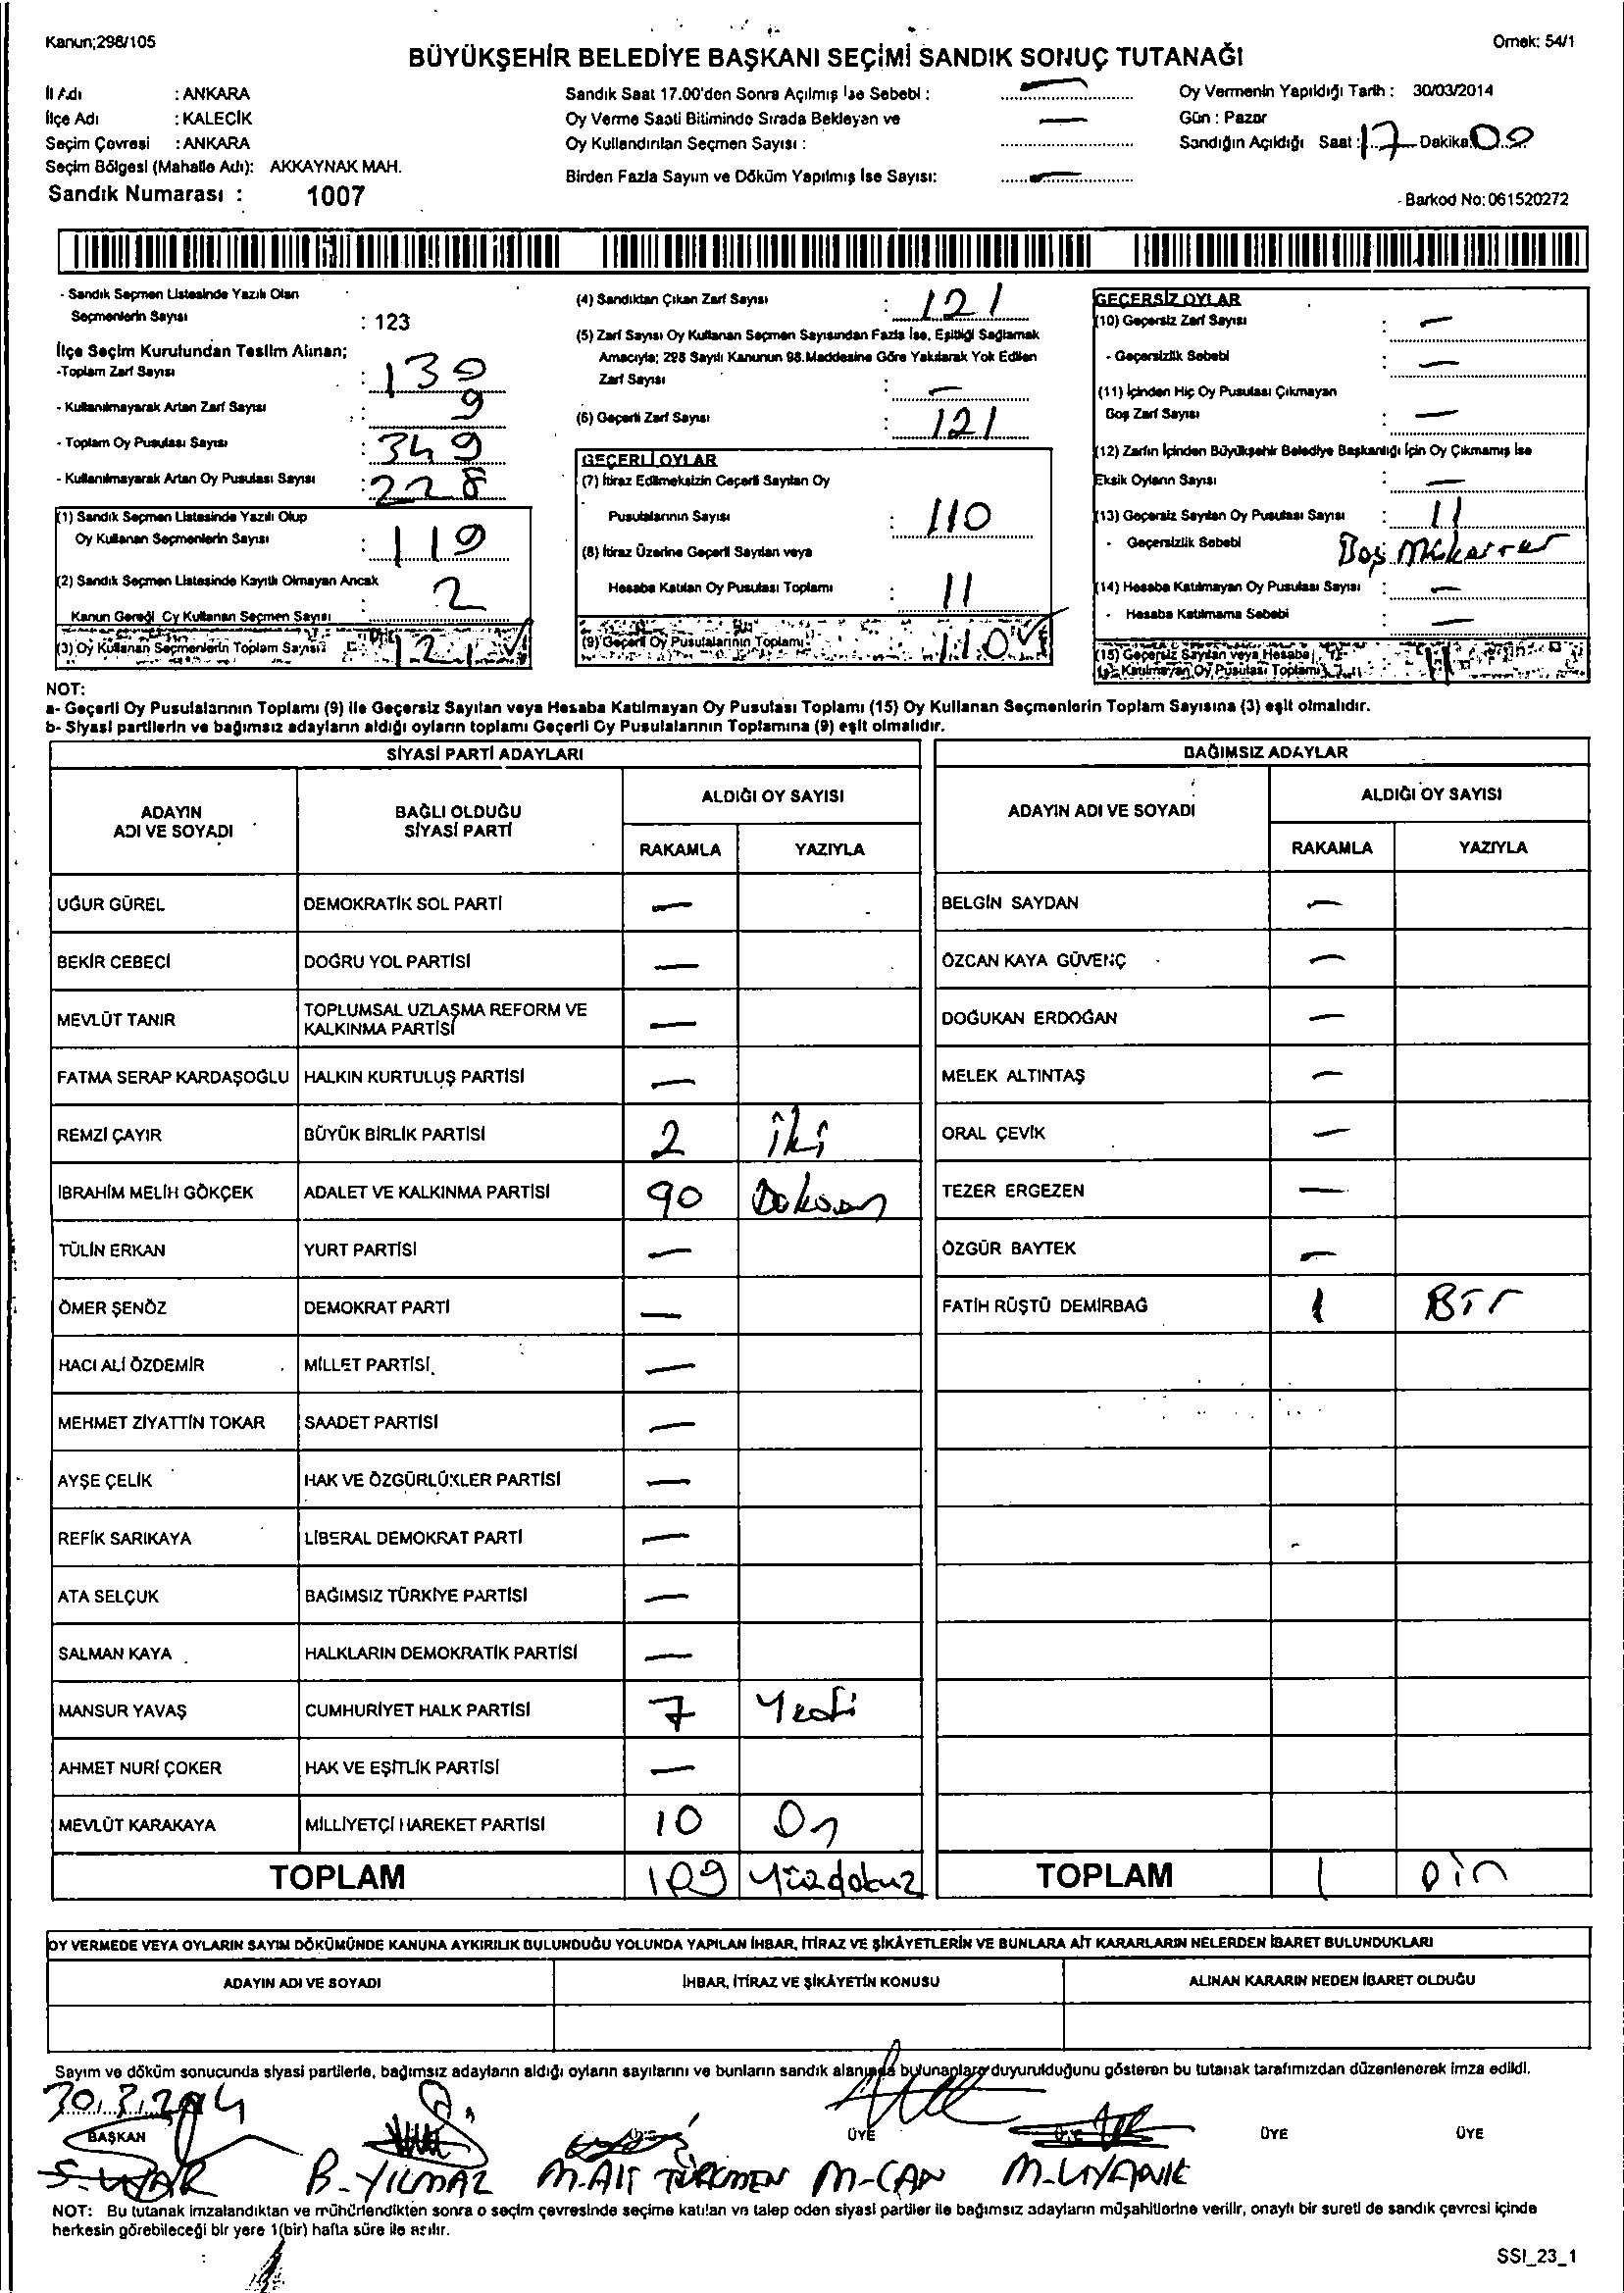 Kanun;298/105
Örnek: 54/1
BÜYÜKŞEHİR BELEDİYE BAŞKANI SEÇİMİ SANDIK SONUÇ TUTANAĞI
İl Adı : ANKARA
İlçe Adı : KALECİK
Seçim Çevresi : ANKARA
Seçim Bölgesi (Mahalle Adı): AKKAYNAK MAH.
Sandık Numarası : 1007
Sandık Saat 17.00'den Sonra Açılmış İse Sebebi : —
Oy Verme Saati Bitiminde Sırada Bekleyen ve —
Oy Kullandırılan Seçmen Sayısı :
Birden Fazla Sayım ve Döküm Yapılmış İse Sayısı: —
Oy Vermenin Yapıldığı Tarih : 30/03/2014
Gün : Pazar
Sandığın Açıldığı Saat : 17 Dakika: 00
Barkod No: 061520272
- Sandık Seçmen Listesinde Yazılı Olan
Seçmenlerin Sayısı : 123
İlçe Seçim Kurulundan Teslim Alınan;
-Toplam Zarf Sayısı : 130
- Kullanılmayarak Artan Zarf Sayısı : 9
- Toplam Oy Pusulası Sayısı : 349
- Kullanılmayarak Artan Oy Pusulası Sayısı : 228
(1) Sandık Seçmen Listesinde Yazılı Olup
Oy Kullanan Seçmenlerin Sayısı : 119
(2) Sandık Seçmen Listesinde Kayıtlı Olmayan Ancak
Kanun Gereği Oy Kullanan Seçmen Sayısı : 2
(3) Oy Kullanan Seçmenlerin Toplam Sayısı: 121
(4) Sandıktan Çıkan Zarf Sayısı : 121
(5) Zarf Sayısı Oy Kullanan Seçmen Sayısından Fazla İse, Eşitliği Sağlamak
Amacıyla; 298 Sayılı Kanunun 98.Maddesine Göre Yakılarak Yok Edilen
Zarf Sayısı : —
(6) Geçerli Zarf Sayısı : 121
GEÇERLİ OYLAR
(7) İtiraz Edilmeksizin Geçerli Sayılan Oy
Pusulalarının Sayısı : 110
(8) İtiraz Üzerine Geçerli Sayılan veya
Hesaba Katılan Oy Pusulası Toplamı : 11
(9) Geçerli Oy Pusulalarının Toplamı: 110
GEÇERSİZ OYLAR
(10) Geçersiz Zarf Sayısı : —
- Geçersizlik Sebebi : —
(11) İçinden Hiç Oy Pusulası Çıkmayan
Boş Zarf Sayısı : —
(12) Zarfın İçinden Büyükşehir Belediye Başkanlığı İçin Oy Çıkmamış İse
Eksik Oyların Sayısı : —
(13) Geçersiz Sayılan Oy Pusulası Sayısı : 11
- Geçersizlik Sebebi Boş Mükerrer
(14) Hesaba Katılmayan Oy Pusulası Sayısı : —
- Hesaba Katılmama Sebebi : —
(15) Geçersiz Sayılan veya Hesaba
Katılmayan Oy Pusulası Toplamı 11
NOT:
a- Geçerli Oy Pusulalarının Toplamı (9) ile Geçersiz Sayılan veya Hesaba Katılmayan Oy Pusulası Toplamı (15) Oy Kullanan Seçmenlerin Toplam Sayısına (3) eşit olmalıdır.
b- Siyasi partilerin ve bağımsız adayların aldığı oyların toplamı Geçerli Oy Pusulalarının Toplamına (9) eşit olmalıdır.
SİYASİ PARTİ ADAYLARI
ADAYIN ADI VE SOYADI
BAĞLI OLDUĞU SİYASİ PARTİ
ALDIĞI OY SAYISI
RAKAMLA YAZIYLA
UĞUR GÜREL DEMOKRATİK SOL PARTİ —
BEKİR CEBECİ DOĞRU YOL PARTİSİ —
MEVLÜT TANIR TOPLUMSAL UZLAŞMA REFORM VE
KALKINMA PARTİSİ —
FATMA SERAP KARDAŞOĞLU HALKIN KURTULUŞ PARTİSİ —
REMZİ ÇAYIR BÜYÜK BİRLİK PARTİSİ 2 iki
İBRAHİM MELİH GÖKÇEK ADALET VE KALKINMA PARTİSİ 90 Doksan
TÜLİN ERKAN YURT PARTİSİ —
ÖMER ŞENÖZ DEMOKRAT PARTİ —
HACI ALİ ÖZDEMİR MİLLET PARTİSİ —
MEHMET ZİYATTİN TOKAR SAADET PARTİSİ —
AYŞE ÇELİK HAK VE ÖZGÜRLÜKLER PARTİSİ —
REFİK SARIKAYA LİBERAL DEMOKRAT PARTİ —
ATA SELÇUK BAĞIMSIZ TÜRKİYE PARTİSİ —
SALMAN KAYA HALKLARIN DEMOKRATİK PARTİSİ —
MANSUR YAVAŞ CUMHURİYET HALK PARTİSİ 7 Yedi
AHMET NURİ ÇOKER HAK VE EŞİTLİK PARTİSİ —
MEVLÜT KARAKAYA MİLLİYETÇİ HAREKET PARTİSİ 10 On
TOPLAM 109 Yüzdokuz
BAĞIMSIZ ADAYLAR
ADAYIN ADI VE SOYADI
ALDIĞI OY SAYISI
RAKAMLA YAZIYLA
BELGİN SAYDAN —
ÖZCAN KAYA GÜVENÇ —
DOĞUKAN ERDOĞAN —
MELEK ALTINTAŞ —
ORAL ÇEVİK —
TEZER ERGEZEN —
ÖZGÜR BAYTEK —
FATİH RÜŞTÜ DEMİRBAĞ 1 Bir
TOPLAM 1 Bir
OY VERMEDE VEYA OYLARIN SAYIM DÖKÜMÜNDE KANUNA AYKIRILIK BULUNDUĞU YOLUNDA YAPILAN İHBAR, İTİRAZ VE ŞİKÂYETLERİN VE BUNLARA AİT KARARLARIN NELERDEN İBARET BULUNDUKLARI
ADAYIN ADI VE SOYADI İHBAR, İTİRAZ VE ŞİKÂYETİN KONUSU ALINAN KARARIN NEDEN İBARET OLDUĞU
Sayım ve döküm sonucunda siyasi partilerle, bağımsız adayların aldığı oyların sayılarını ve bunların sandık alanında bulunanlara duyurulduğunu gösteren bu tutanak tarafımızdan düzenlenerek imza edildi.
30.3.2014
BAŞKAN ÜYE ÜYE ÜYE ÜYE
S. UYAR B. YILMAZ M. Ali TÜRKMEN M. CAN M. UYANIK
NOT: Bu tutanak imzalandıktan ve mühürlendikten sonra o seçim çevresinde seçime katılan ve talep eden siyasi partiler ile bağımsız adayların müşahitlerine verilir, onaylı bir sureti de sandık çevresi içinde
herkesin görebileceği bir yere 1(bir) hafta süre ile asılır.
SSI_23_1